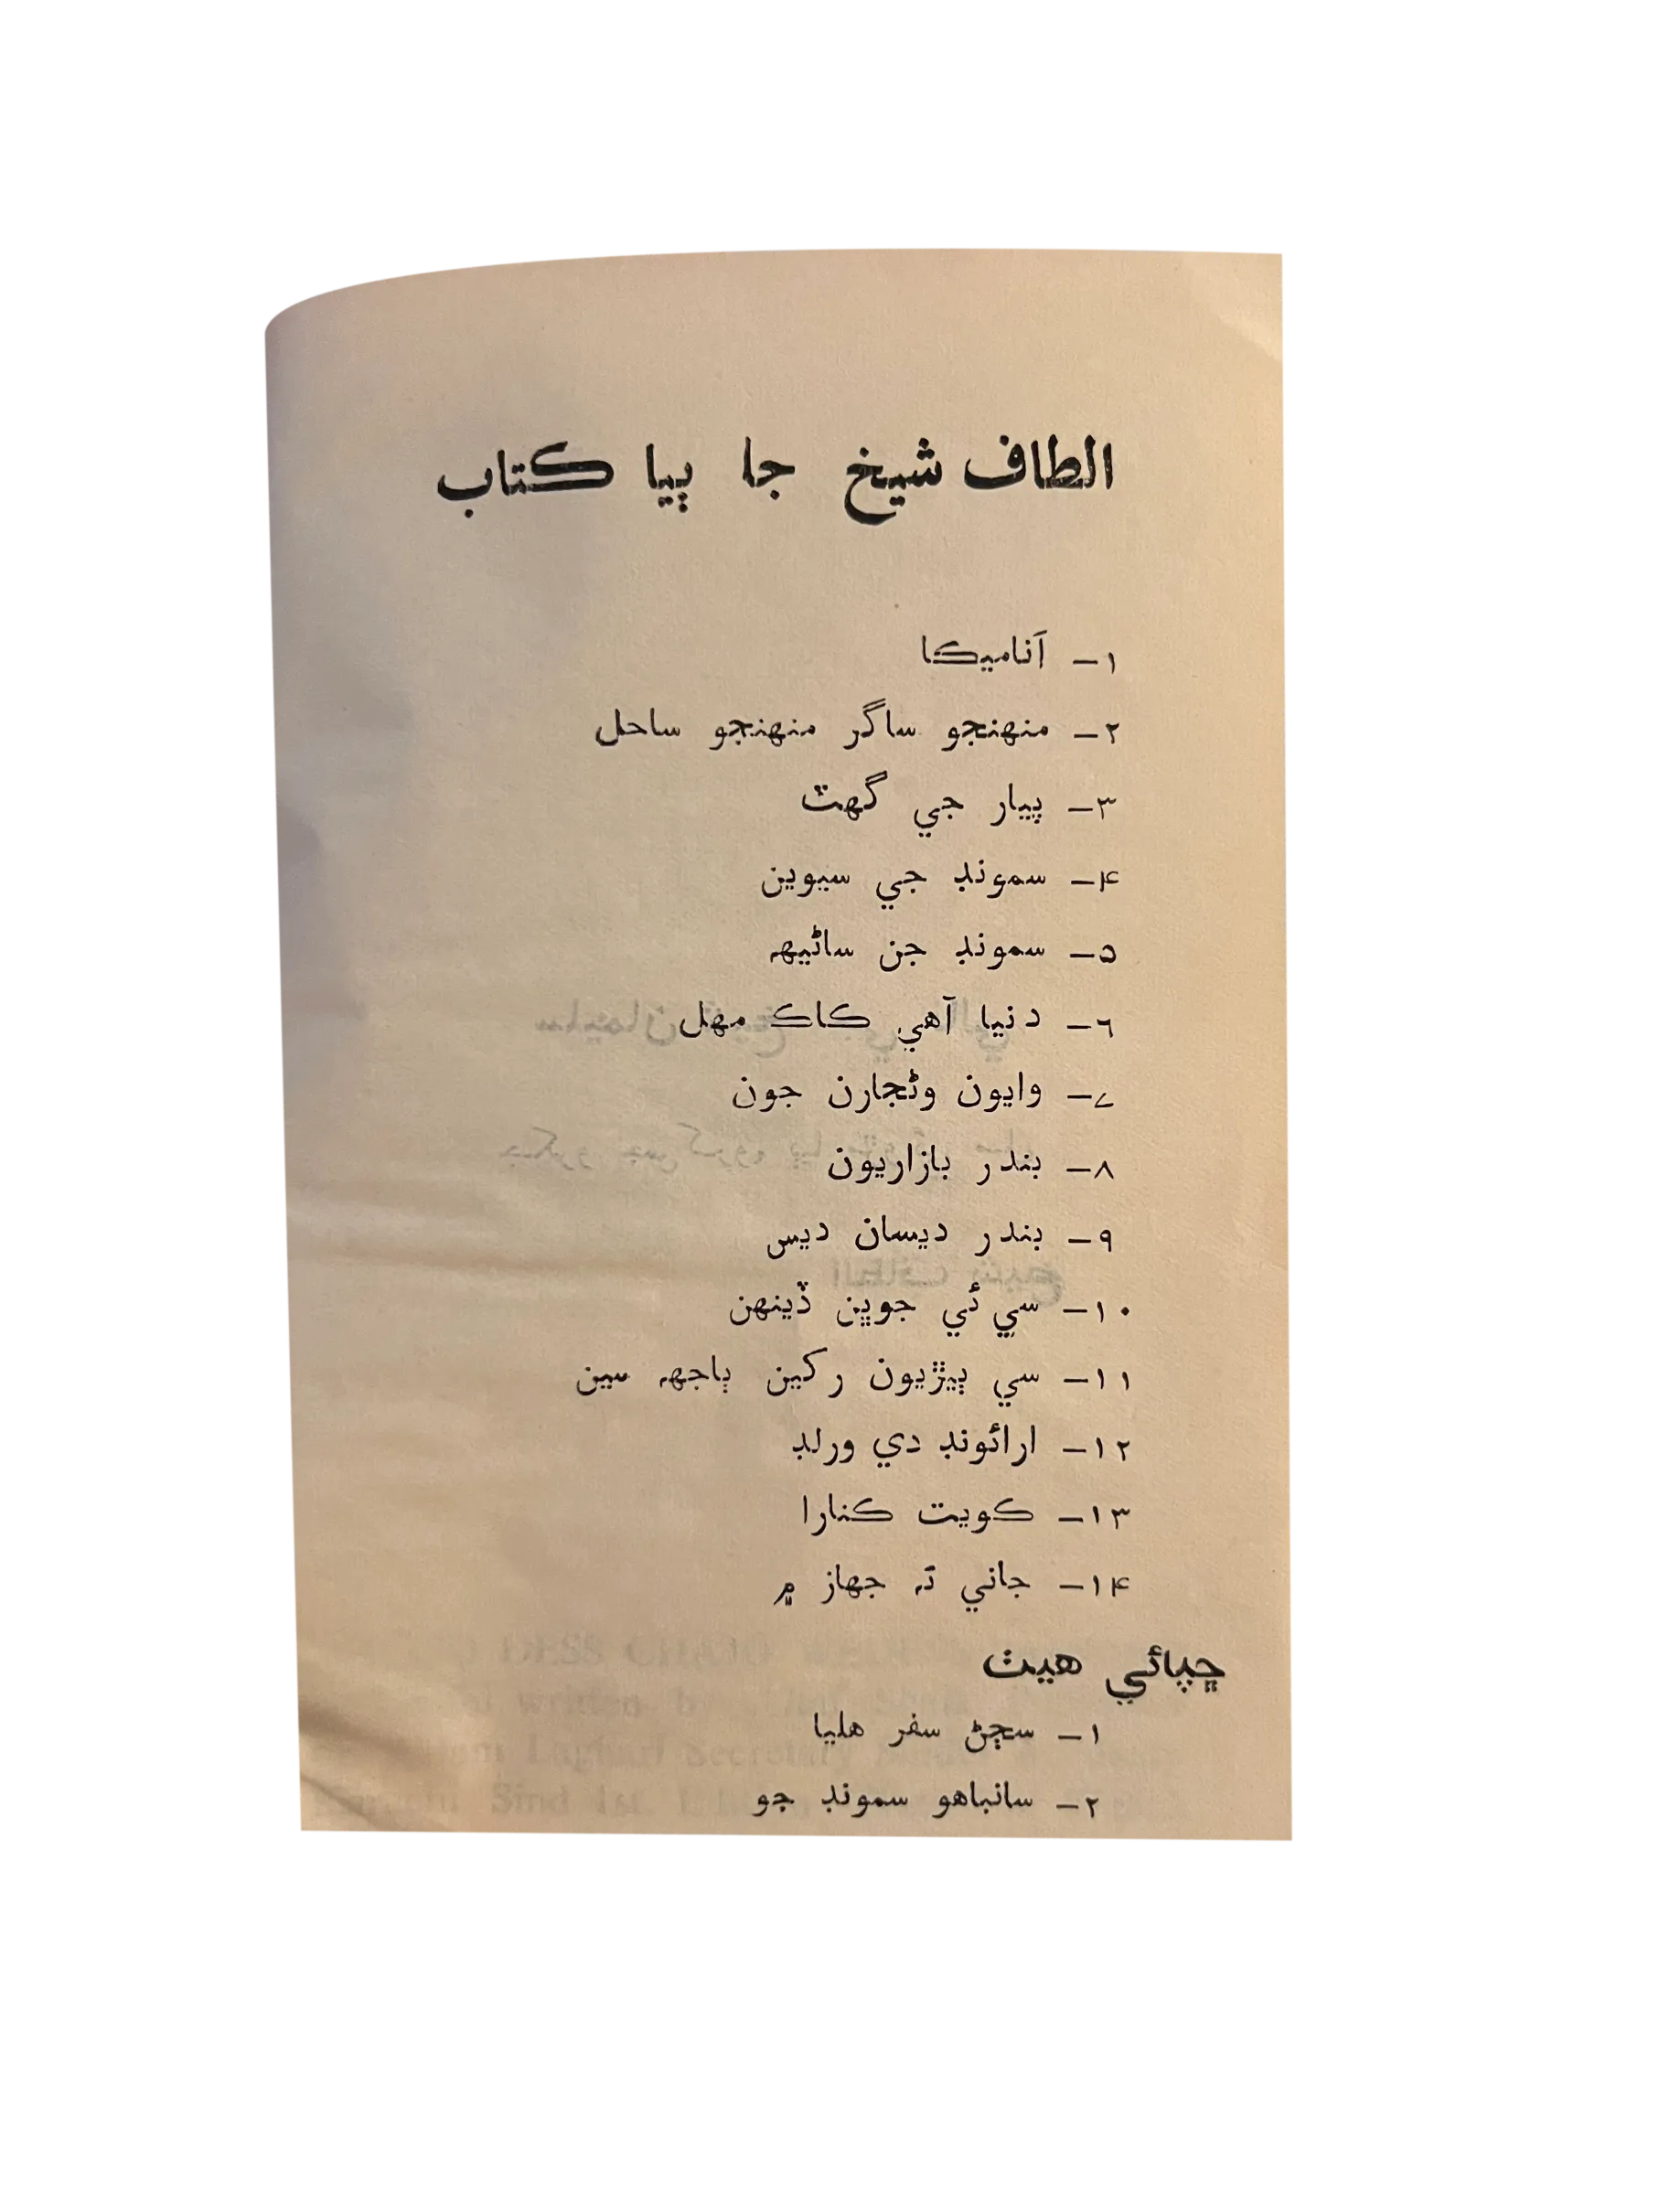 الطاف شيخ جا ٻيا ڪتاب
١ــ آناميڪا
٢ــ منهنجو ساگر منهنجو ساحل
٣ــ پيار جي گهٽ
۴ــ سمونڊ جي سيوين
۵ــ سمونڊ جن ساڻيهہ
٦ــ دنيا آهي ڪاڪ مهل
٧ــ وايون وڻجارن جون
٨ــ بندر بازاريون
٩ــ بندر ديسان ديس
١٠ــ سي ئي جوڀن ڏينهن
١١ــ سي ٻيڙيون رکين ٻاجهہ سين
١٢ــ ارائونڊ دي ورلڊ
١٣ــ ڪويت ڪنارا
١۴ــ جاني تہ جهاز ۾
ڇپائي هيٺ
١ــ سڄڻ سفر هليا
٢ــ سانباهو سمونڊ جو